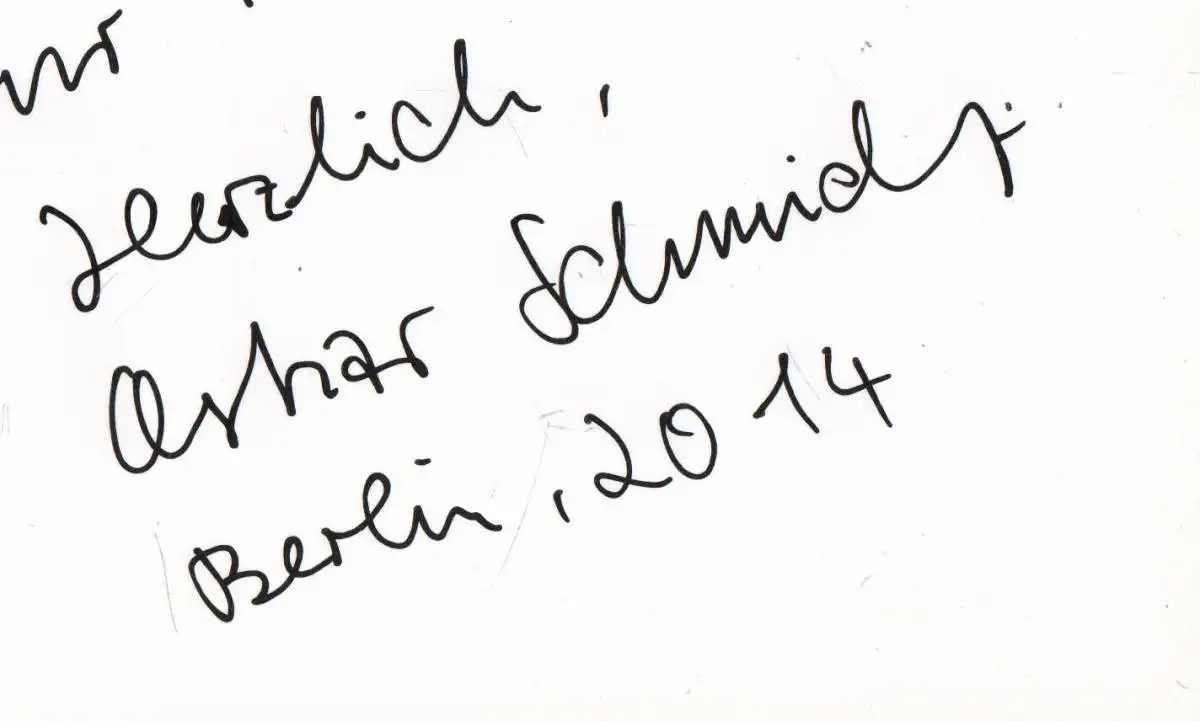 Herzlich,
Oskar Schmidt
Berlin, 2014